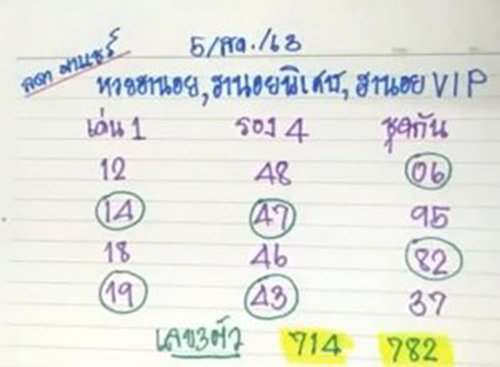 5/สค./63
ลดา มาแชร์
หวยฮานอย, ฮานอยพิเศษ, ฮานอย VIP
เด่น 1 รอง 4 ชุดกัน
12 48 06
14 47 95
18 46 82
19 43 37
เลข3ตัว 714 782